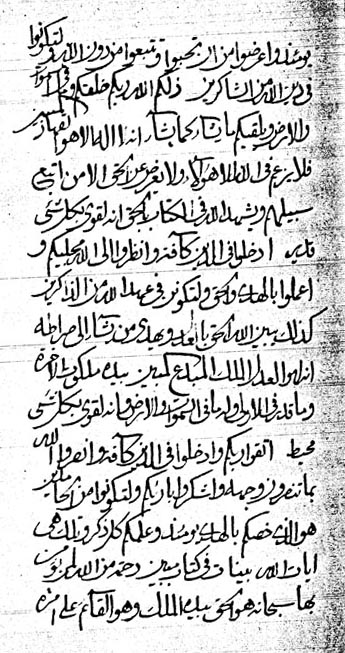 يومئذ واعرضوا من ان تحبوا وتتبعوا من دون الله ولتكونوا
في دين الله من الشاكرين ذلكم الله ربكم خلقكم
والارض ويلقيكم ما يشاء كما يشاء انه لا اله الا هو
فلا يرغب في الله الا هؤلاء ولا يعرض عن الحق الا من اتبع
سبيلهم ويشهد الله في الكتاب بالحق انه لقوى بكل شئ
قدير ادخلوا في الدين كآفة وانظروا الى الله
اعملوا بالهدى والحق ولتكونن في عهد الله من الذاكرين
كذلك يبين الله الحق بالعدل ويهدى من يشاء الى صراطه
انه لهو العدل الملك المبدع المبين بيده ملكوت الآخرة
وما قدر في الاولى وما في السموات والارض وانه لقوى بكل شئ
محيط اتقوا ربكم وادخلوا في الدين كآفة وانصروا الله
بما تنصرون وجهه واشكروا بارئكم ولتكونوا من الحامدين
هو الذي خصكم بالهدى يومئذ وعلمكم كل ذكر وتلك هي
ايات الله بينات في كتاب مبين رحمة من الله لمن يؤمن
بها سبحانه هو الحق بيده الملك وهو القائم على امره